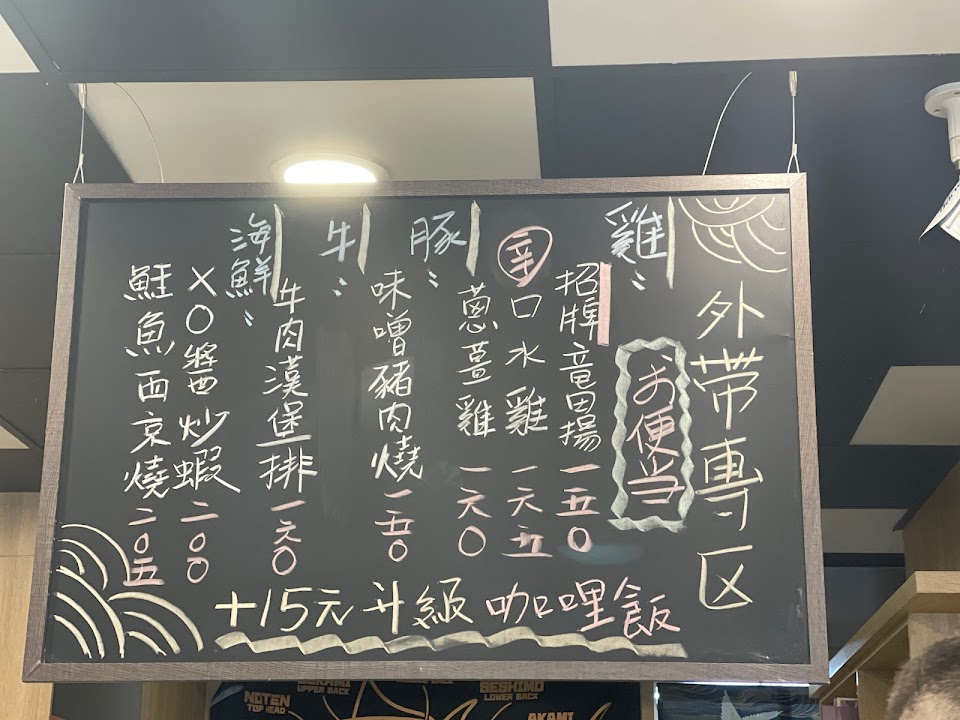 外帶專区
お便当
雞：
招牌竜田揚一五〇
辛口水雞一六五
蔥薑雞一六〇
豚：
味噌豬肉燒一五〇
牛：
牛肉漢堡排一六〇
海鮮：
XO醬炒蝦二〇〇
鮭魚西京燒二〇五
+15元升級咖哩飯
NOTEN
TOP HEAD
UPPER BACK
SESHIMO
LOWER BACK
AKAMI